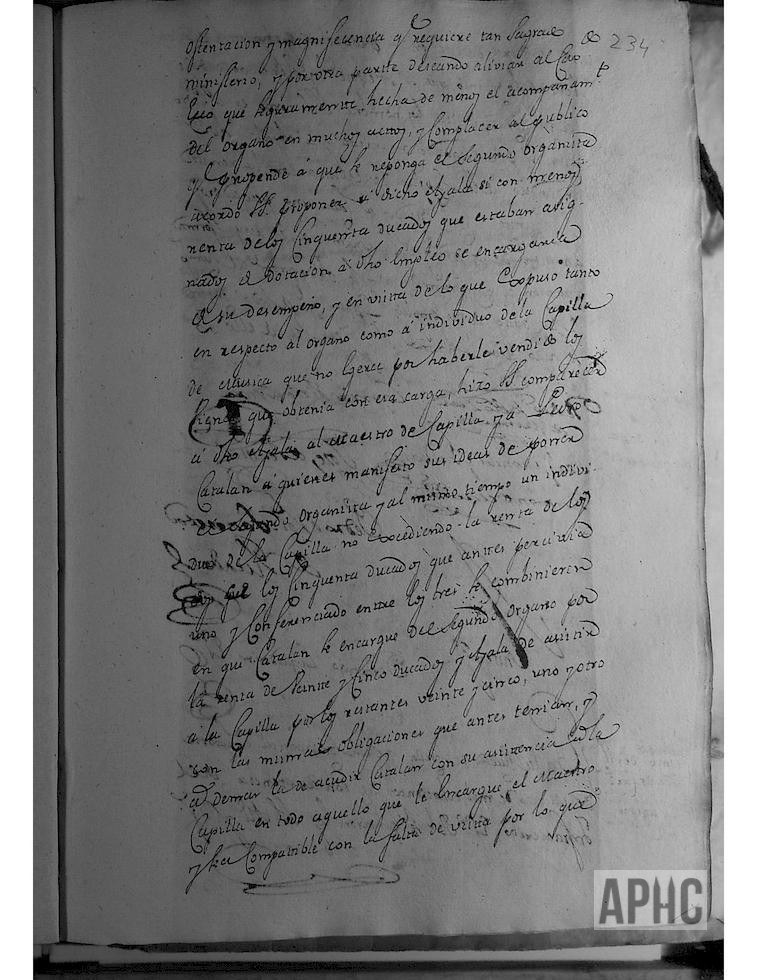 ostentacion y magnificencia q.e requiere tan Sagrado 234
ministerio, y por otra parte deseando aliviar al Cav
que seguramente hecha de menos el acompañam.to
del organo en muchos actos, y complacer al publico
q.e propende á que se reponga el segundo organista
acordó proponer a dicho Ayala si con menos
renta de los Cinquenta ducados que estaban asig-
nados de dotacion á dho empleo se encargaria
de su desempeño, y en vista de lo que expuso tanto
en respecto al organo como á individuo de la Capilla
de Musica que no exerce por haberle vendido los
que obtenia con esa carga, hizo comparecer
a dho Ayala al Maestro de Capilla y á Pedro
Catalan á quienes manifesto sus ideas de poner
segundo organista y al mismo tiempo un indivi-
duo de la Capilla no excediendo la renta de los
dos de los Cinquenta ducados que antes percivia
uno y Conferenciado entre los tres se combinieron
en que Catalan se encargue del segundo organo por
la renta de Veinte y Cinco ducados y Ayala de asistir
a la Capilla por los restantes veinte y cinco, uno y otro
con las mismas obligaciones que antes tenian, y
ademas la de acudir Catalan con su asistencia a la
Capilla en todo aquello que le encargue el Maestro
y sea Compatible con la falta de vista por lo que
APHC